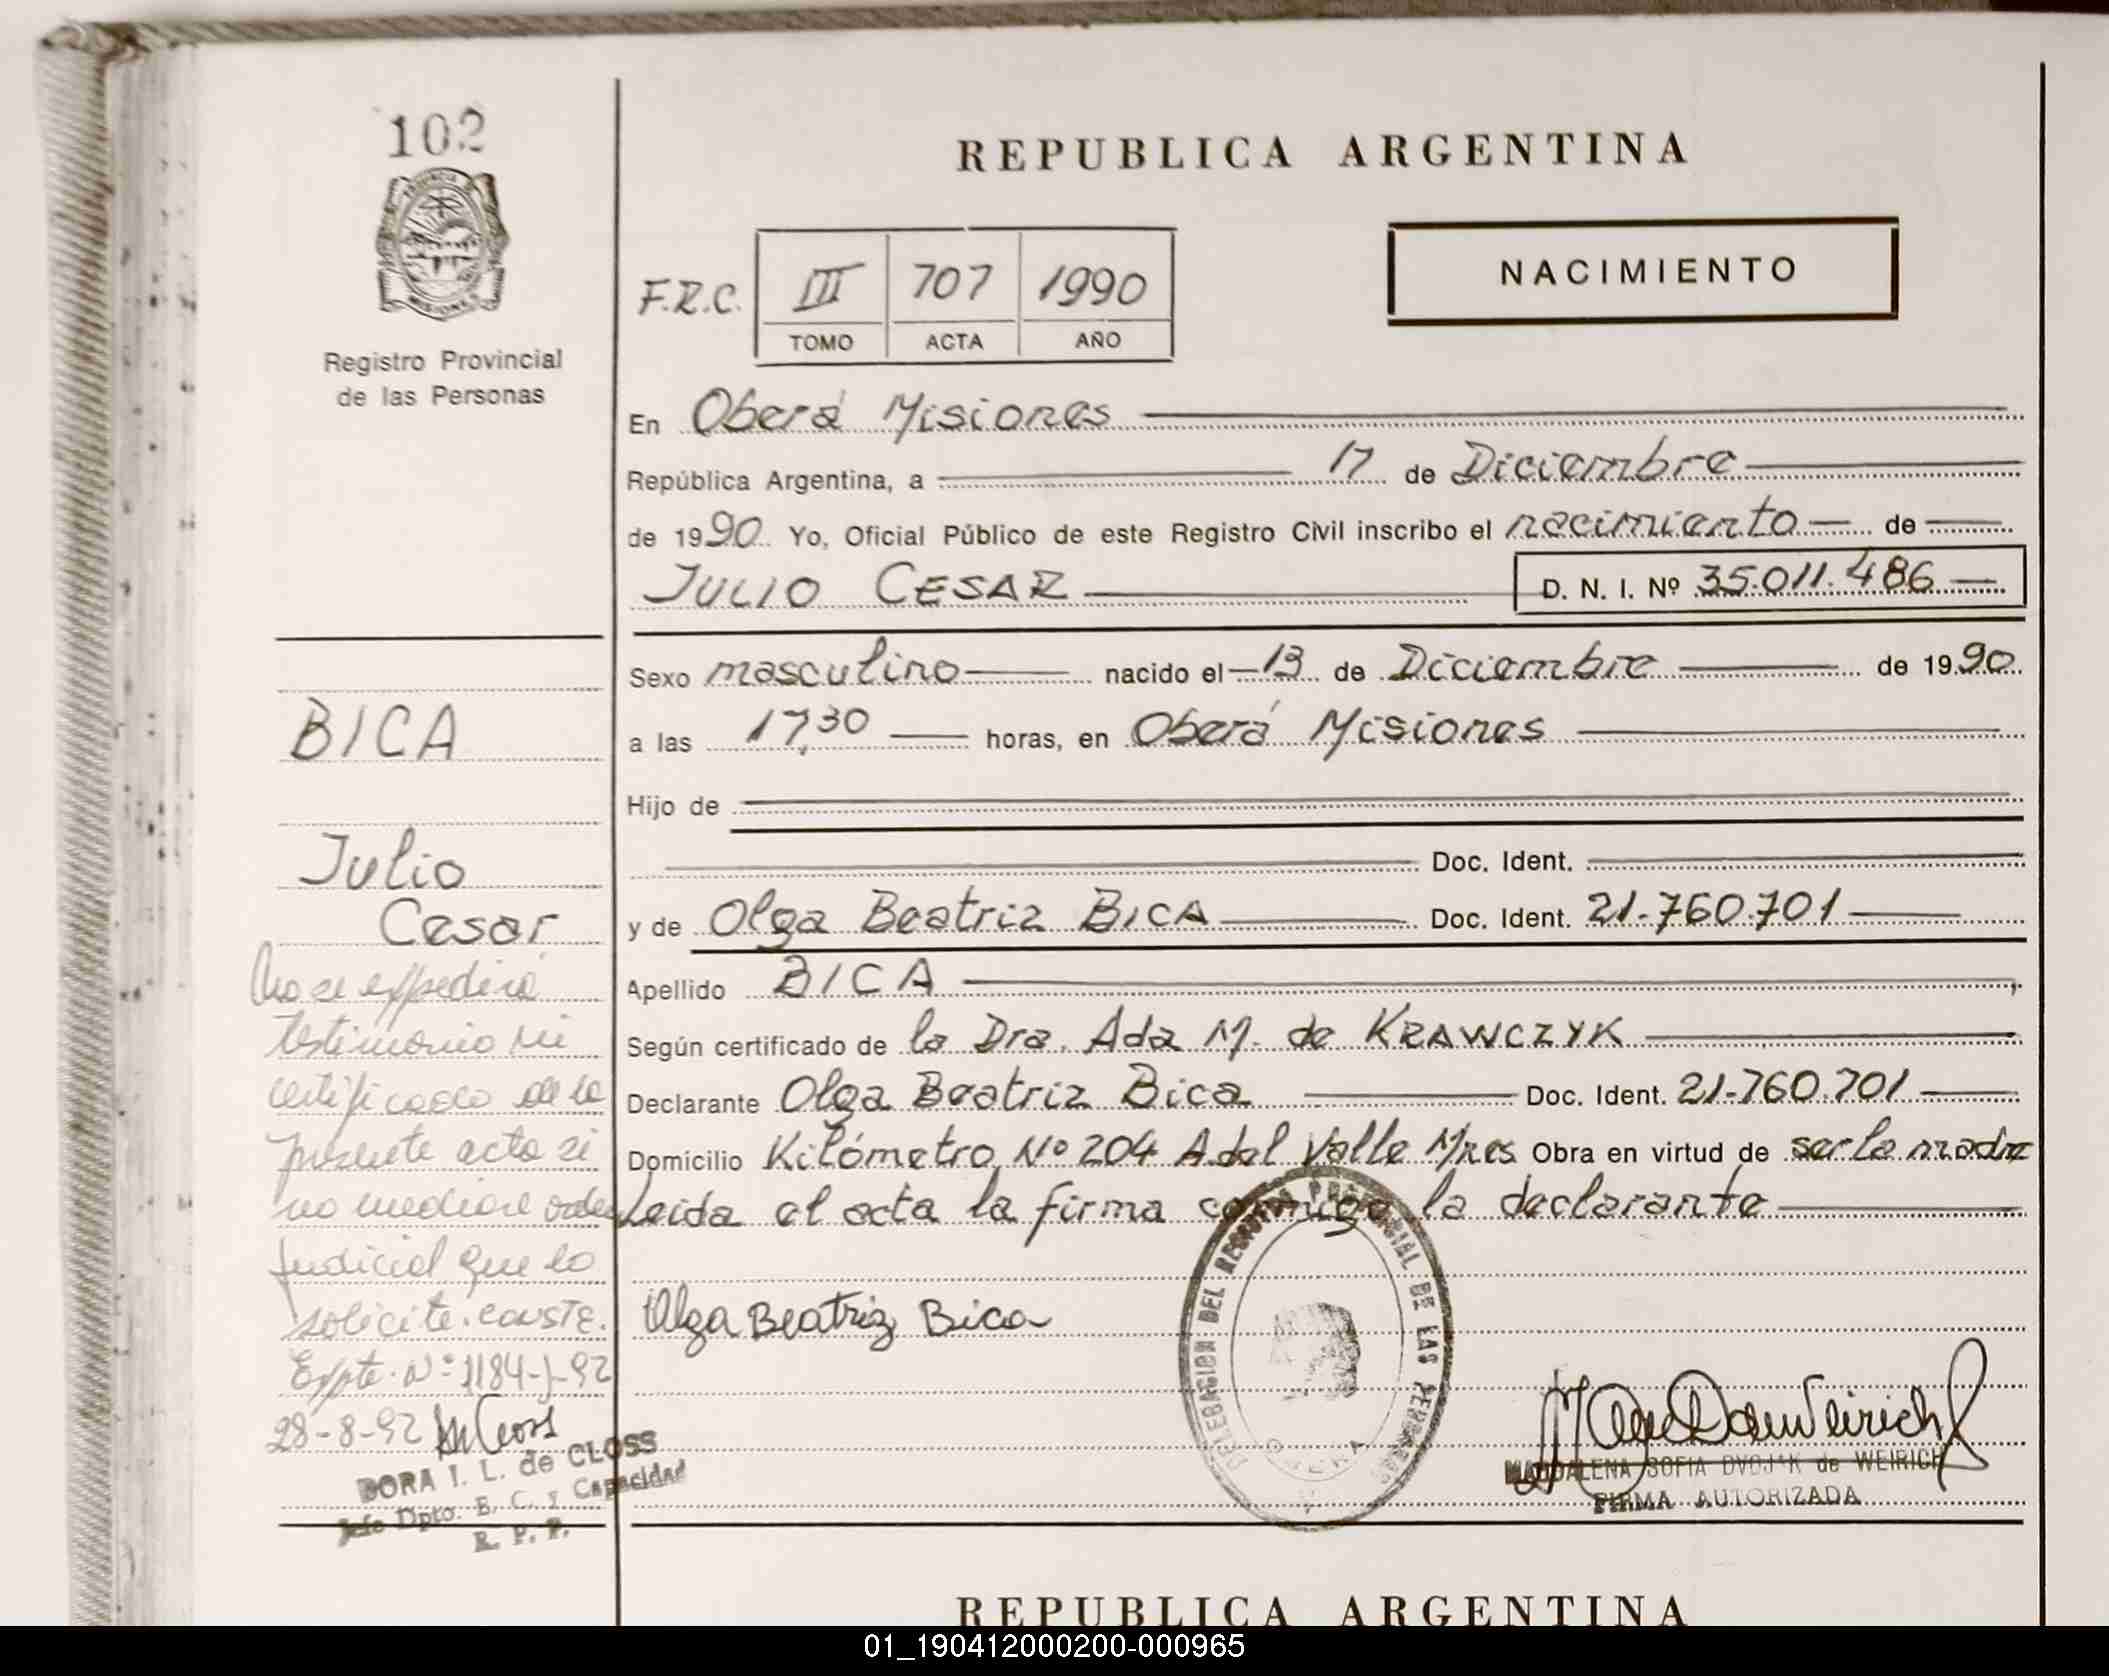 102
PROVINCIA DE
MISIONES
Registro Provincial
de las Personas
REPUBLICA ARGENTINA
F.R.C. III 707 1990
TOMO ACTA AÑO
NACIMIENTO
En Oberá Misiones
República Argentina, a 17 de Diciembre
de 1990 Yo, Oficial Público de este Registro Civil inscribo el nacimiento de
JULIO CESAR D. N. I. Nº 35.011.486
Sexo masculino nacido el 13 de Diciembre de 1990
a las 17,30 horas, en Oberá Misiones
Hijo de
Doc. Ident.
y de Olga Beatriz BICA Doc. Ident. 21.760.701
Apellido BICA ,
Según certificado de la Dra. Ada M. de KRAWCZYK
Declarante Olga Beatriz Bica Doc. Ident. 21.760.701
Domicilio Kilómetro Nº 204 A.del Valle Mnes Obra en virtud de ser la madre
Leida el acta la firma conmigo la declarante
Olga Beatriz Bica
DELEGACION DEL REGISTRO PROVINCIAL DE LAS PERSONAS
OBERA
MAGDALENA SOFIA DVOJAK de WEIRICH
FIRMA AUTORIZADA
BICA
Julio
Cesar
No se expedirá
testimonio ni
certificado de la
presente acta si
no mediare orden
judicial que lo
solicite. CONSTE.
Expte. Nº 1184-J-92
28-8-92
DORA I. L. de CLOSS
Jefe Dpto. E. C. y Capacidad
R. P. P.
REPUBLICA ARGENTINA
01_190412000200-000965